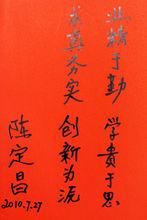 业精于勤 学贵于思
求真务实 创新为源
陈定昌
2010.7.27